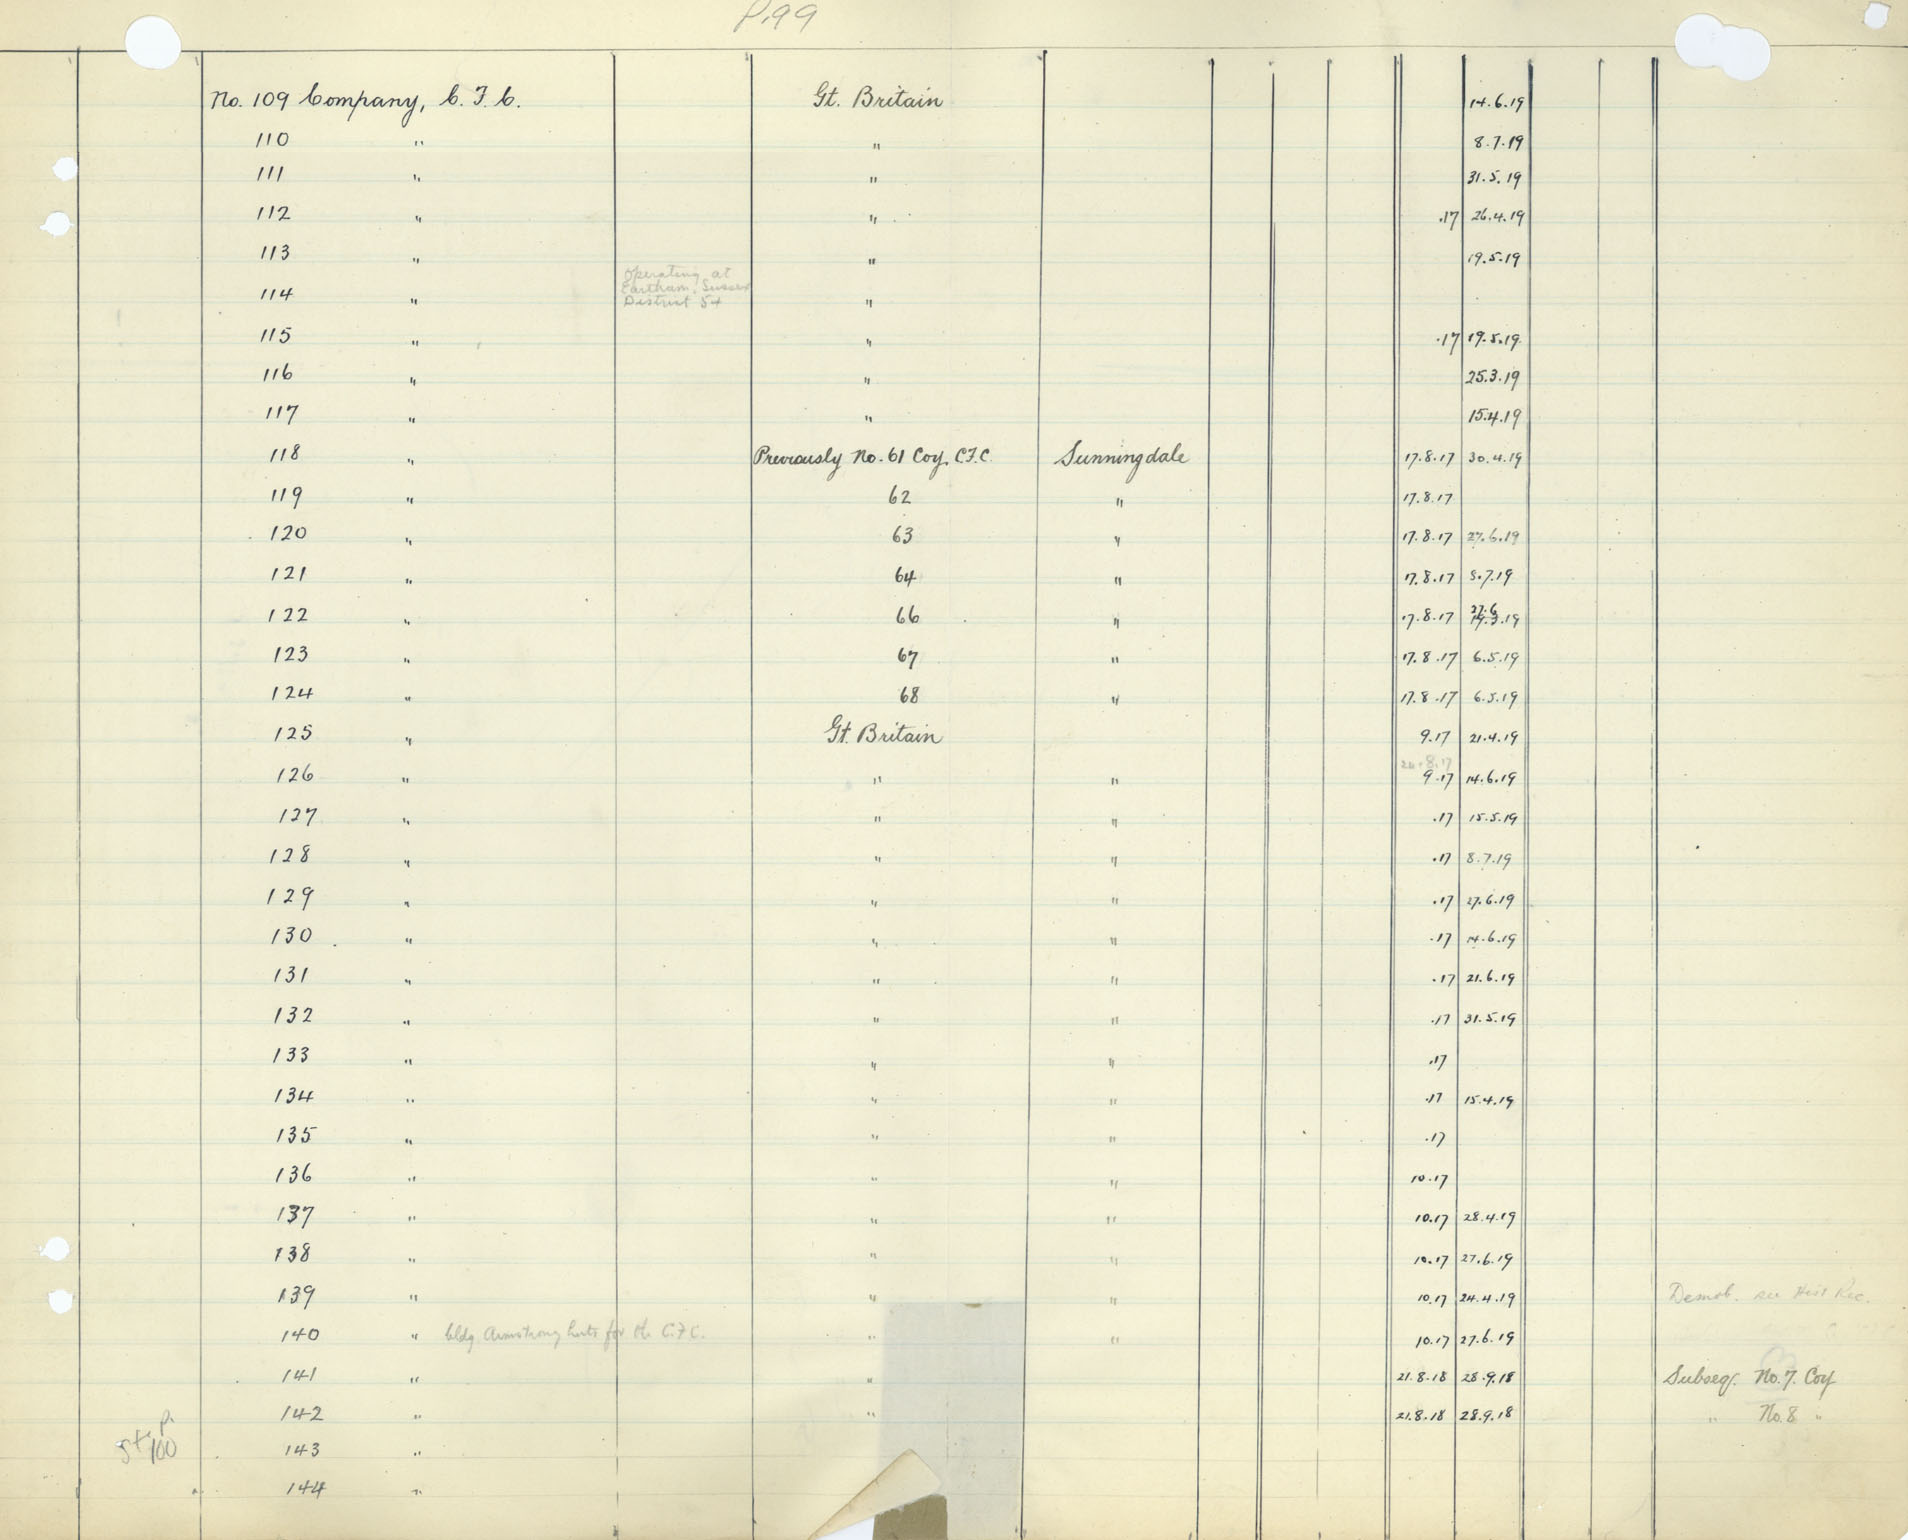 P.99
No. 109 Company, C. F. C. Gt. Britain 14.6.19
110 " " 8.7.19
111 " " 31.5.19
112 " " .17 26.4.19
113 " " 19.5.19
operating at
Eartham, Sussex
District 54
114 " "
115 " " .17 19.5.19
116 " " 25.3.19
117 " " 15.4.19
118 " Previously No. 61 Coy. C.F.C. Sunningdale 17.8.17 30.4.19
119 " 62 " 17.8.17
120 " 63 " 17.8.17 27.6.19
121 " 64 " 17.8.17 5.7.19
27.6
122 " 66 " 17.8.17 19.3.19
123 " 67 " 17.8.17 6.5.19
124 " 68 " 17.8.17 6.5.19
125 " Gt. Britain 9.17 21.4.19
24.8.17
126 " " " 9.17 14.6.19
127 " " " .17 15.5.19
128 " " " .17 8.7.19
129 " " " .17 27.6.19
130 " " " .17 14.6.19
131 " " " .17 21.6.19
132 " " " .17 31.5.19
133 " " " .17
134 " " " .17 15.4.19
135 " " " .17
136 " " " 10.17
137 " " " 10.17 28.4.19
138 " " " 10.17 27.6.19
139 " " " 10.17 24.4.19 Demob. see Hist Rec.
140 " bldg. Armstrong huts for the C.F.C. " " 10.17 27.6.19
141 " " 21.8.18 28.9.18 Subseq. No. 7. Coy
142 " " 21.8.18 28.9.18 " No. 8 "
P.
100
143 "
144 "